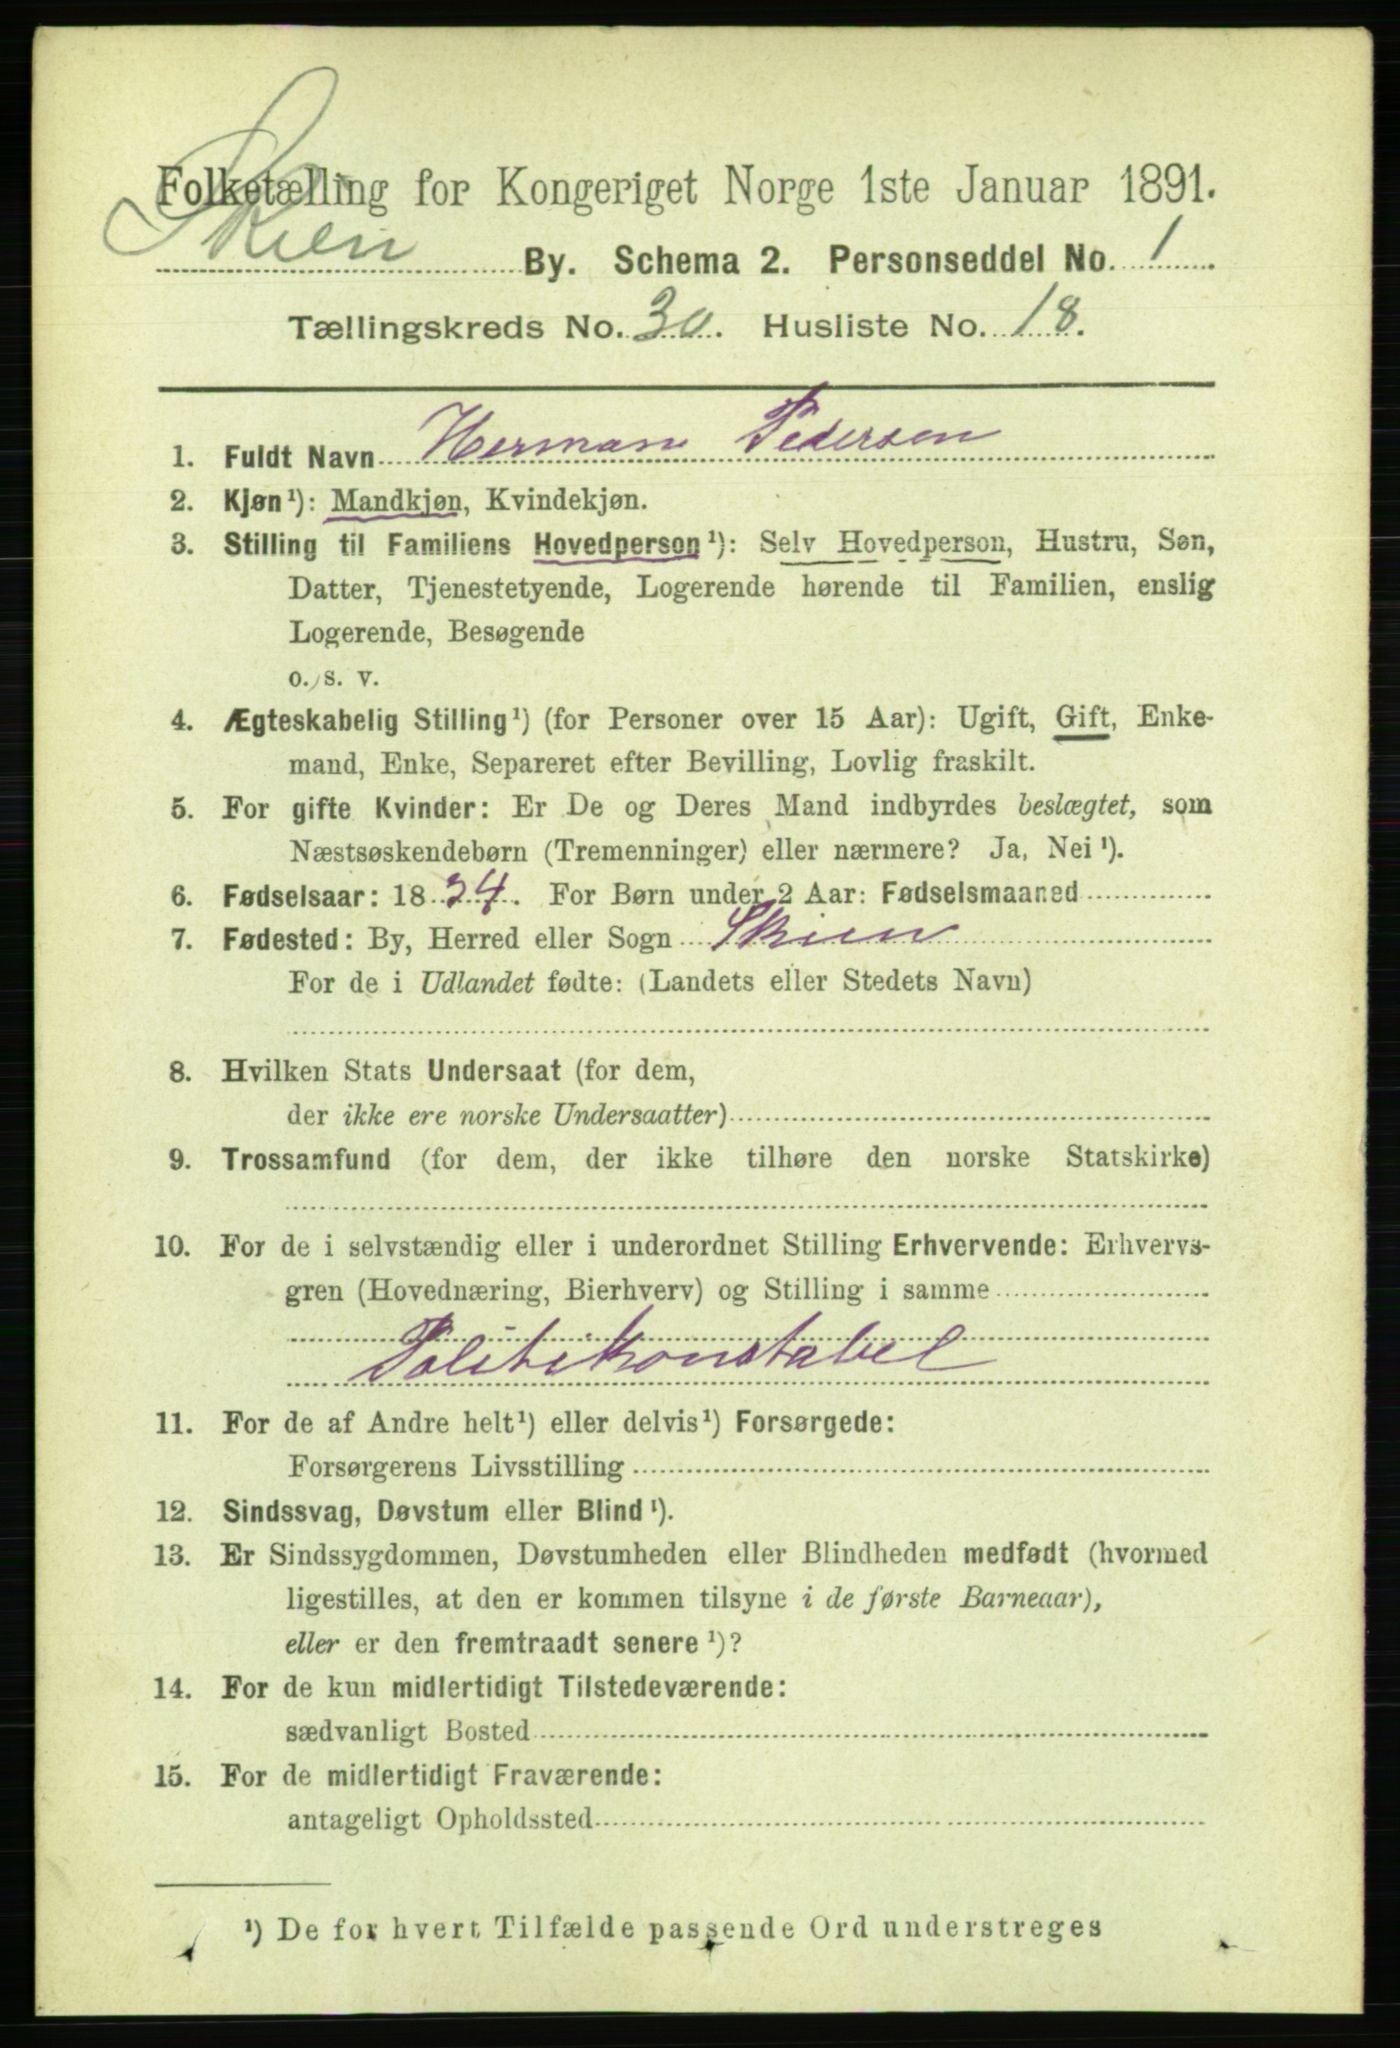 Folketælling for Kongeriget Norge 1ste Januar 1891.
Skien By. Schema 2. Personseddel No. 1
Tællingskreds No. 30. Husliste No. 18.
1. Fuldt Navn Herman Pedersen
2. Kjøn¹): Mandkjøn, Kvindekjøn.
3. Stilling til Familiens Hovedperson¹): Selv Hovedperson, Hustru, Søn,
Datter, Tjenestetyende, Logerende hørende til Familien, enslig
Logerende, Besøgende
o. s. v.
4. Ægteskabelig Stilling¹) (for Personer over 15 Aar): Ugift, Gift, Enke-
mand, Enke, Separeret efter Bevilling, Lovlig fraskilt.
5. For gifte Kvinder: Er De og Deres Mand indbyrdes beslægtet, som
Næstsøskendebørn (Tremenninger) eller nærmere? Ja, Nei¹).
6. Fødselsaar: 1834. For Børn under 2 Aar: Fødselsmaaned
7. Fødested: By, Herred eller Sogn Skien
For de i Udlandet fødte: (Landets eller Stedets Navn)
8. Hvilken Stats Undersaat (for dem,
der ikke ere norske Undersaatter)
9. Trossamfund (for dem, der ikke tilhøre den norske Statskirke)
10. For de i selvstændig eller i underordnet Stilling Erhvervende: Erhvervs-
gren (Hovednæring, Bierhverv) og Stilling i samme
Politikonstabel
11. For de af Andre helt¹) eller delvis¹) Forsørgede:
Forsørgerens Livsstilling
12. Sindssvag, Døvstum eller Blind¹).
13. Er Sindssygdommen, Døvstumheden eller Blindheden medfødt (hvormed
ligestilles, at den er kommen tilsyne i de første Barneaar),
eller er den fremtraadt senere¹)?
14. For de kun midlertidigt Tilstedeværende:
sædvanligt Bosted
15. For de midlertidigt Fraværende:
antageligt Opholdssted
¹) De for hvert Tilfælde passende Ord understreges